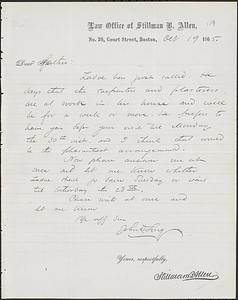 Law Office of Stillman B. Allen,
No. 20, Court Street, Boston, Oct 19 1865.
Dear Father:
Zadoc has just called. He
says that the carpenter and plasterers
are at work in his house and will
be for a week or more. He prefers to
have you defer your visit till Monday
the 30th inst and I think that would
be the pleasantest arrangement.
Now please answer me at
once and let me know whether
Zadoc shall go down Tuesday or wait
till Saturday the 28th.
Please write at once and
let me know
Yr aff son
John D Long
Yours, respectfully,
Stillman B Allen